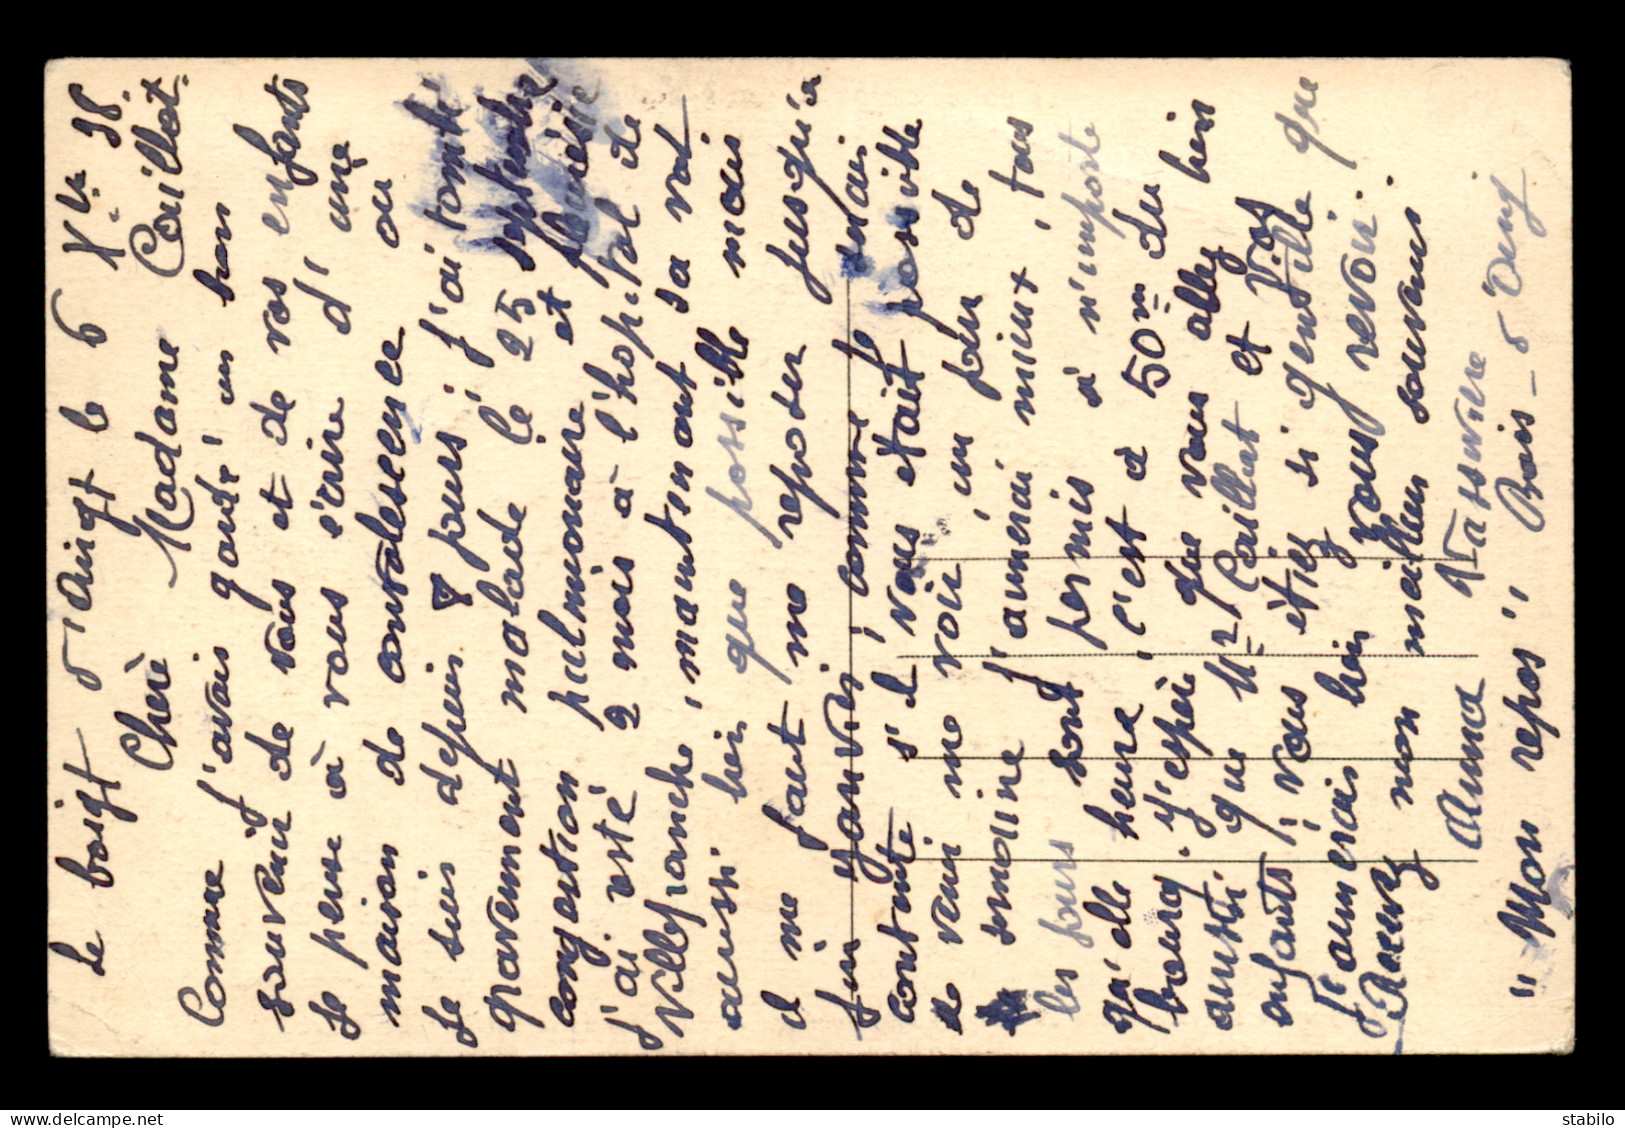 Le boigt d'Oingt le 6 Xbre 38.
Cherè Madame Caillat.
Comme j'avais gardé un bon
souvenir de vous et de vos enfants
Je pense à vous s'crire d'une
maison de convalescence ou
Je suis depuis 8 jours j'ai tombé
gravement malade le 25 septembre
congestion pulmonaire et pleurésie
j'ai esté 2 mois à l'hopital de
Villefranche, maintenant sa vat
aussi bien que possible mais
il me faut me reposer jusqu'a
fin Janvier, comme je serais
contente s'il vous était possible
de venir me voir, un jour de
semaine J'aimerai mieux, tous
les jours sont permis a n'importe
qu'elle heure, c'est à 50m du
bourg. j'espère que vous allez bien
aussi que Mr Caillat et Vos
enfants, vous étiez si gentille que
J'aimerais bien vous revoir.
Recevez mon meilleur souvenir
Anna Vassivière
"Mon repos" Bois-d'Oingt
stabilo